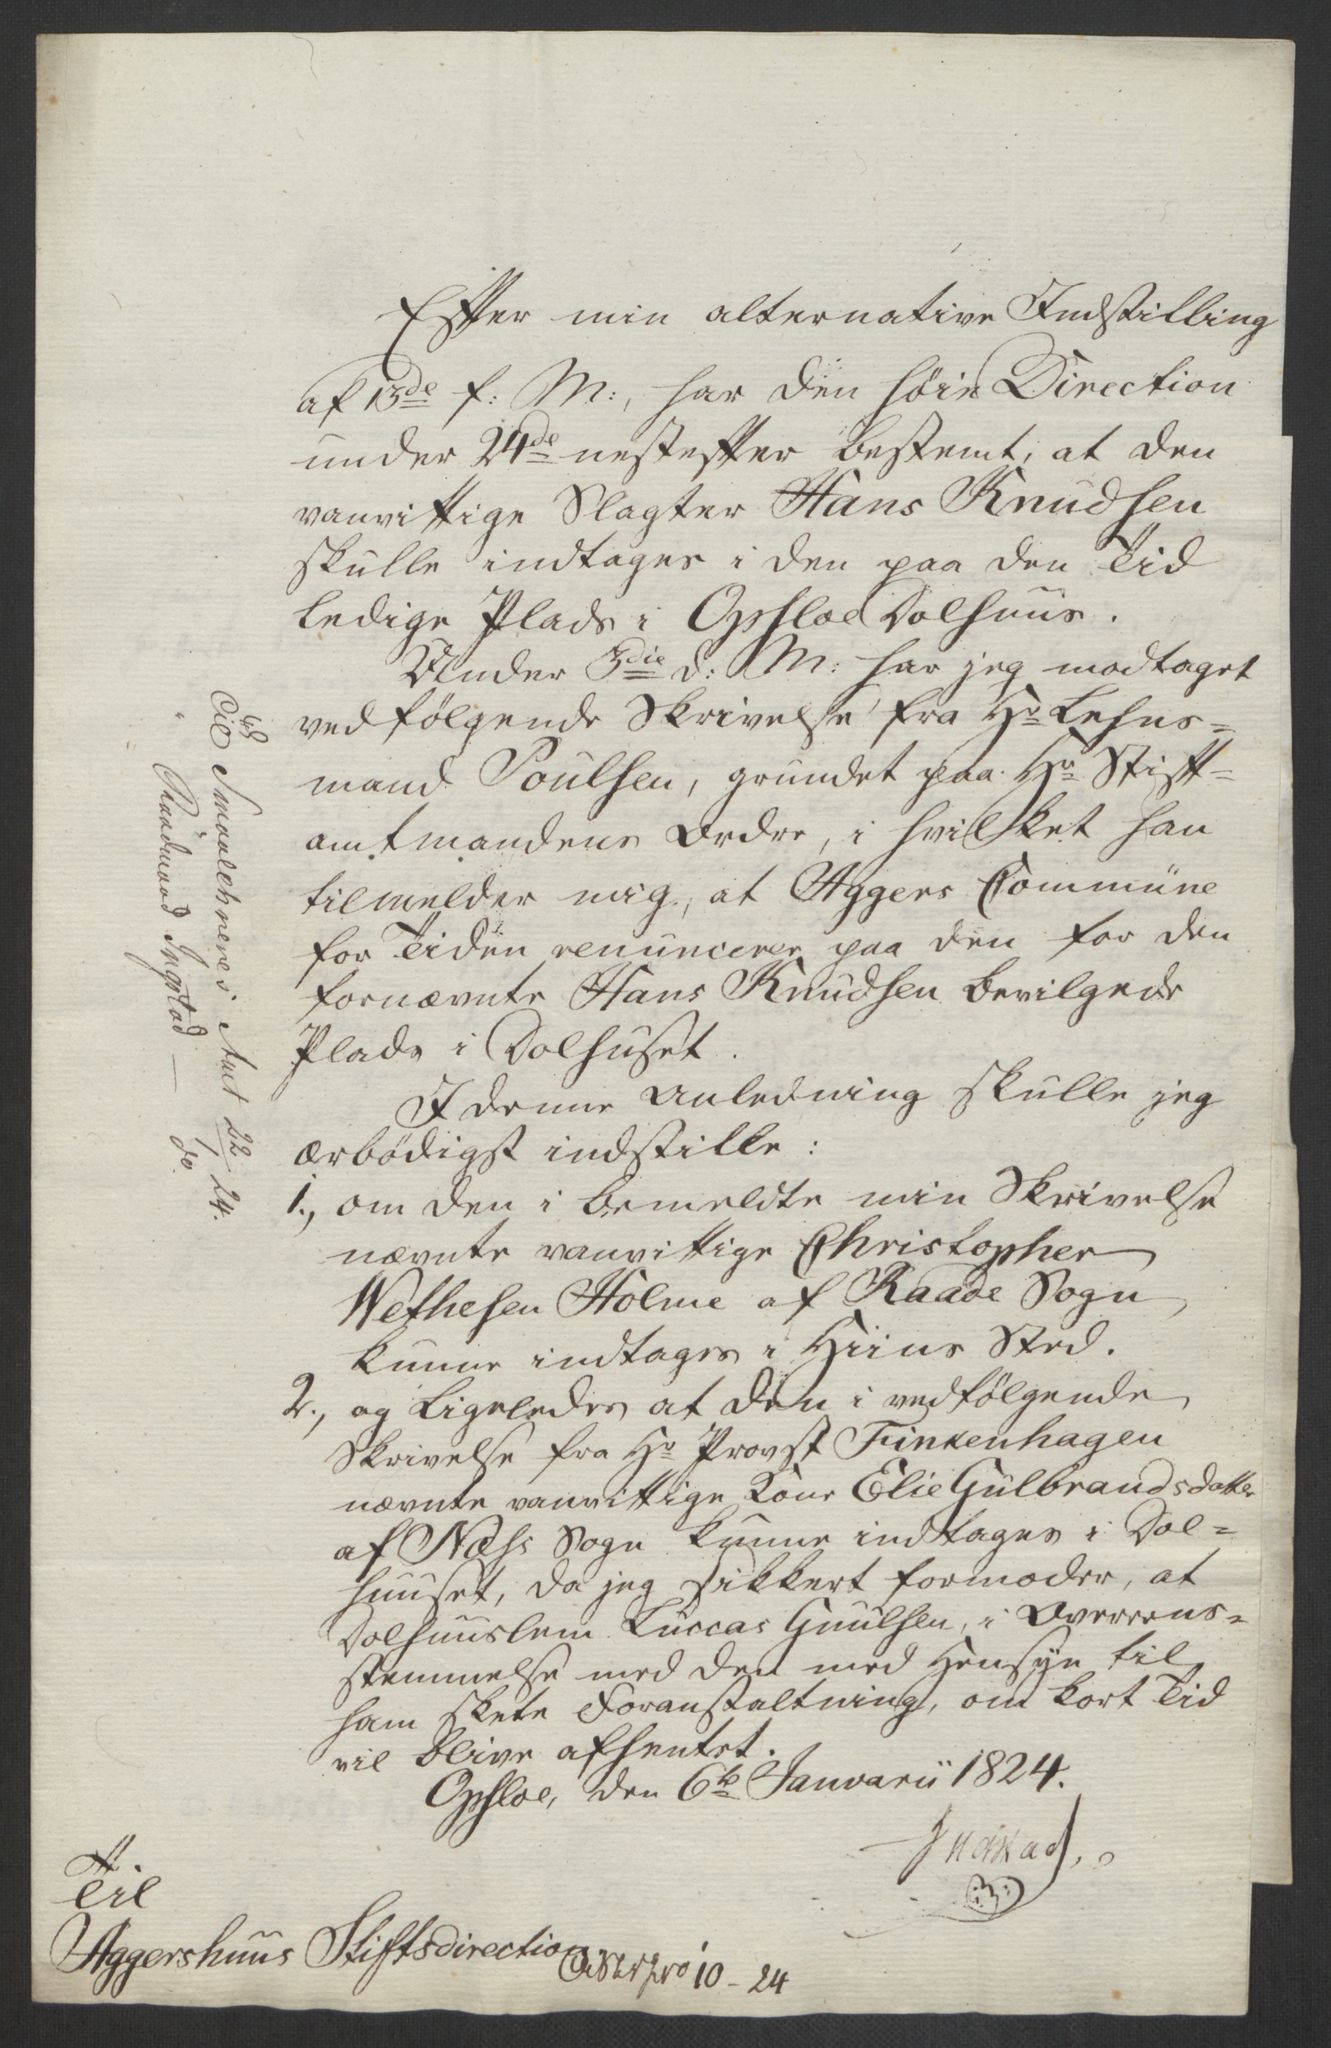 Efter min alternative Indstilling
af 13de f: M:, har den høie Direction
under 24de nestefter bestemt, at den
vanvittige Slagter Hans Knudsen
skulle indtages i den paa den Tid
ledige Plads i Opsloe Dolhuus.
Under 3die d: M: har jeg modtaget
vedfølgende Skrivelse fra Hr Lehns-
mand Poulsen, grundet paa Hr Stift-
amtmandens Ordre, i hvilket han
tilmelder mig, at Aggers Commüne
for Tiden renuncerer paa den for den
fornævnte Hans Knudsen bevilgede
Plads i Dolhuset.
I denne Anledning skulle jeg
ærbødigst indstille:
1., om den i bemeldte min Skrivelse
nævnte vanvittige Christopher
Wethesen Holme af Raade Sogn
kunne indtages i Hiins Sted.
2., og ligeledes at den i vedfølgende
Skrivelse fra Hr Provst Finkenhagen
nævnte vanvittige Kone Elie Gulbrandsdatter
af Næhs Sogn kunne indtages i Dol-
huuset, da jeg sikkert formoder, at
Dolhuuslem Luccas Guulsen, i Overeens-
stemmelse med den med Hensyn til
ham skete Foranstaltning, om kort Tid
vil blive afhentet.
Opsloe, den 6te Januarii 1824.
Til
Aggershuus Stiftsdirection
10-24
Til Smaalehnenes Amt 22/1 24.
" Raadmand Ingstad — do.